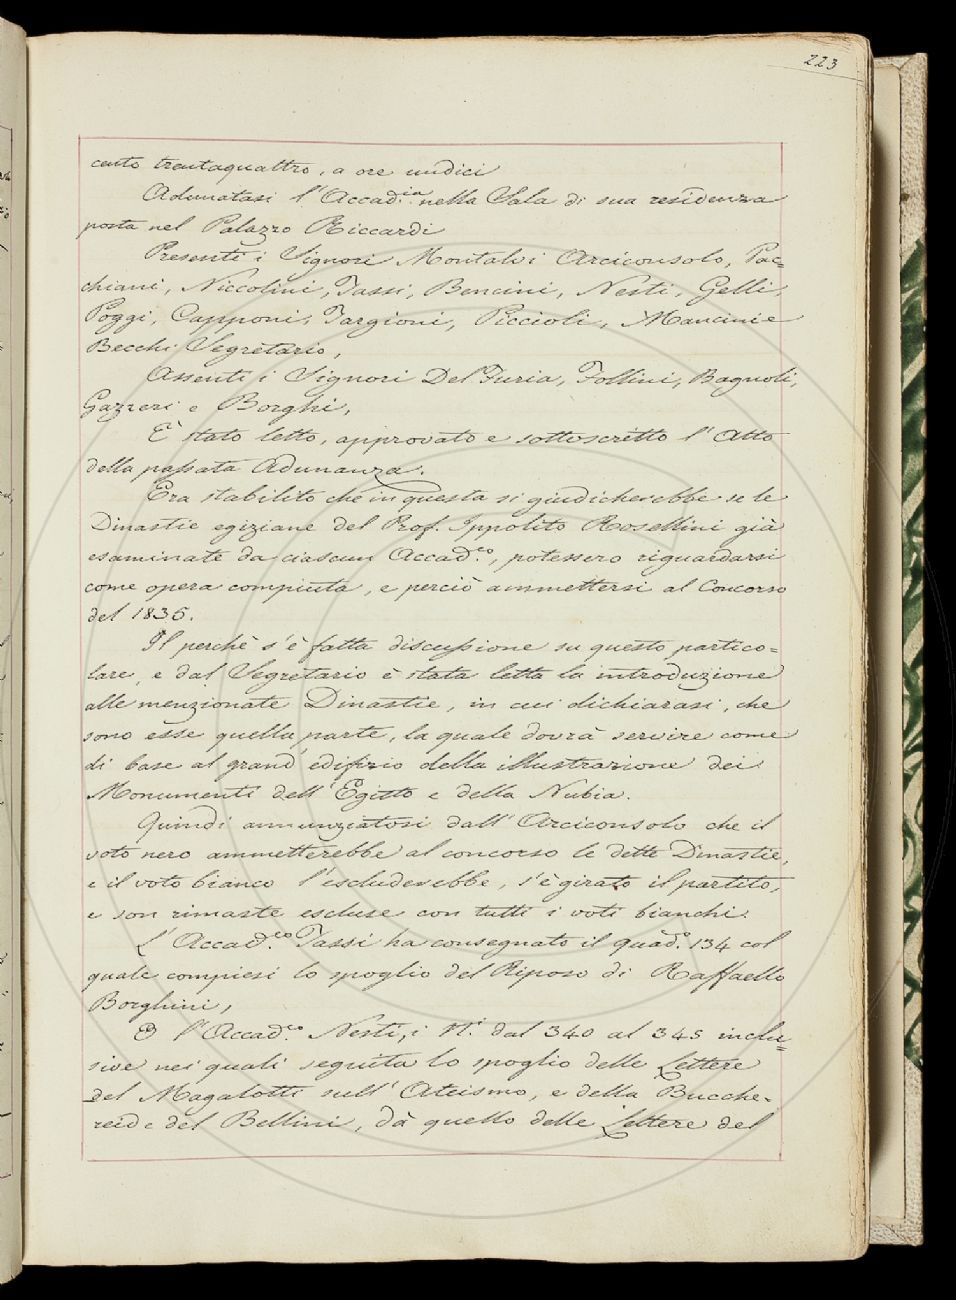 223
cento trentaquattro, a ore undici
Adunatasi l'Accad.ia nella Sala di sua residenza
posta nel Palazzo Riccardi
Presenti i Signori Montalvi Arciconsolo, Pac=
chiani, Niccolini, Tassi, Bencini, Nesti, Gelli,
Poggi, Capponi, Targioni, Piccioli, Mancini e
Becchi Segretario,
Assenti i Signori Del Furia, Follini, Bagnoli,
Gazzeri e Borghi,
È stato letto, approvato e sottoscritto l'Atto
della passata Adunanza.
Era stabilito che in questa si giudicherebbe se le
Dinastie egiziane del Prof. Ippolito Rosellini già
esaminate da ciascun Accad.co, potessero riguardarsi
come opera compiuta, e perciò ammettersi al Concorso
del 1835.
Il perchè s'è fatta discussione su questo partico=
lare, e dal Segretario è stata letta la introduzione
alle menzionate Dinastie, in cui dichiarasi, che
sono esse quella parte, la quale dovrà servire come
di base al grand'edifizio della illustrazione dei
Monumenti dell'Egitto e della Nubia.
Quindi annunziatosi dall'Arciconsolo che il
voto nero ammetterebbe al concorso le dette Dinastie,
e il voto bianco l'escluderebbe, s'è girato il partito,
e son rimaste escluse con tutti i voti bianchi.
L'Accad.co Tassi ha consegnato il quad.o 134 col
quale compiesi lo spoglio del Riposo di Raffaello
Borghini,
E l'Accad.co Nesti, i N.i dal 340 al 345 inclu=
sive nei quali seguita lo spoglio delle Lettere
del Magalotti sull'Ateismo, e della Bucche=
reide del Bellini, dà quello delle Lettere del